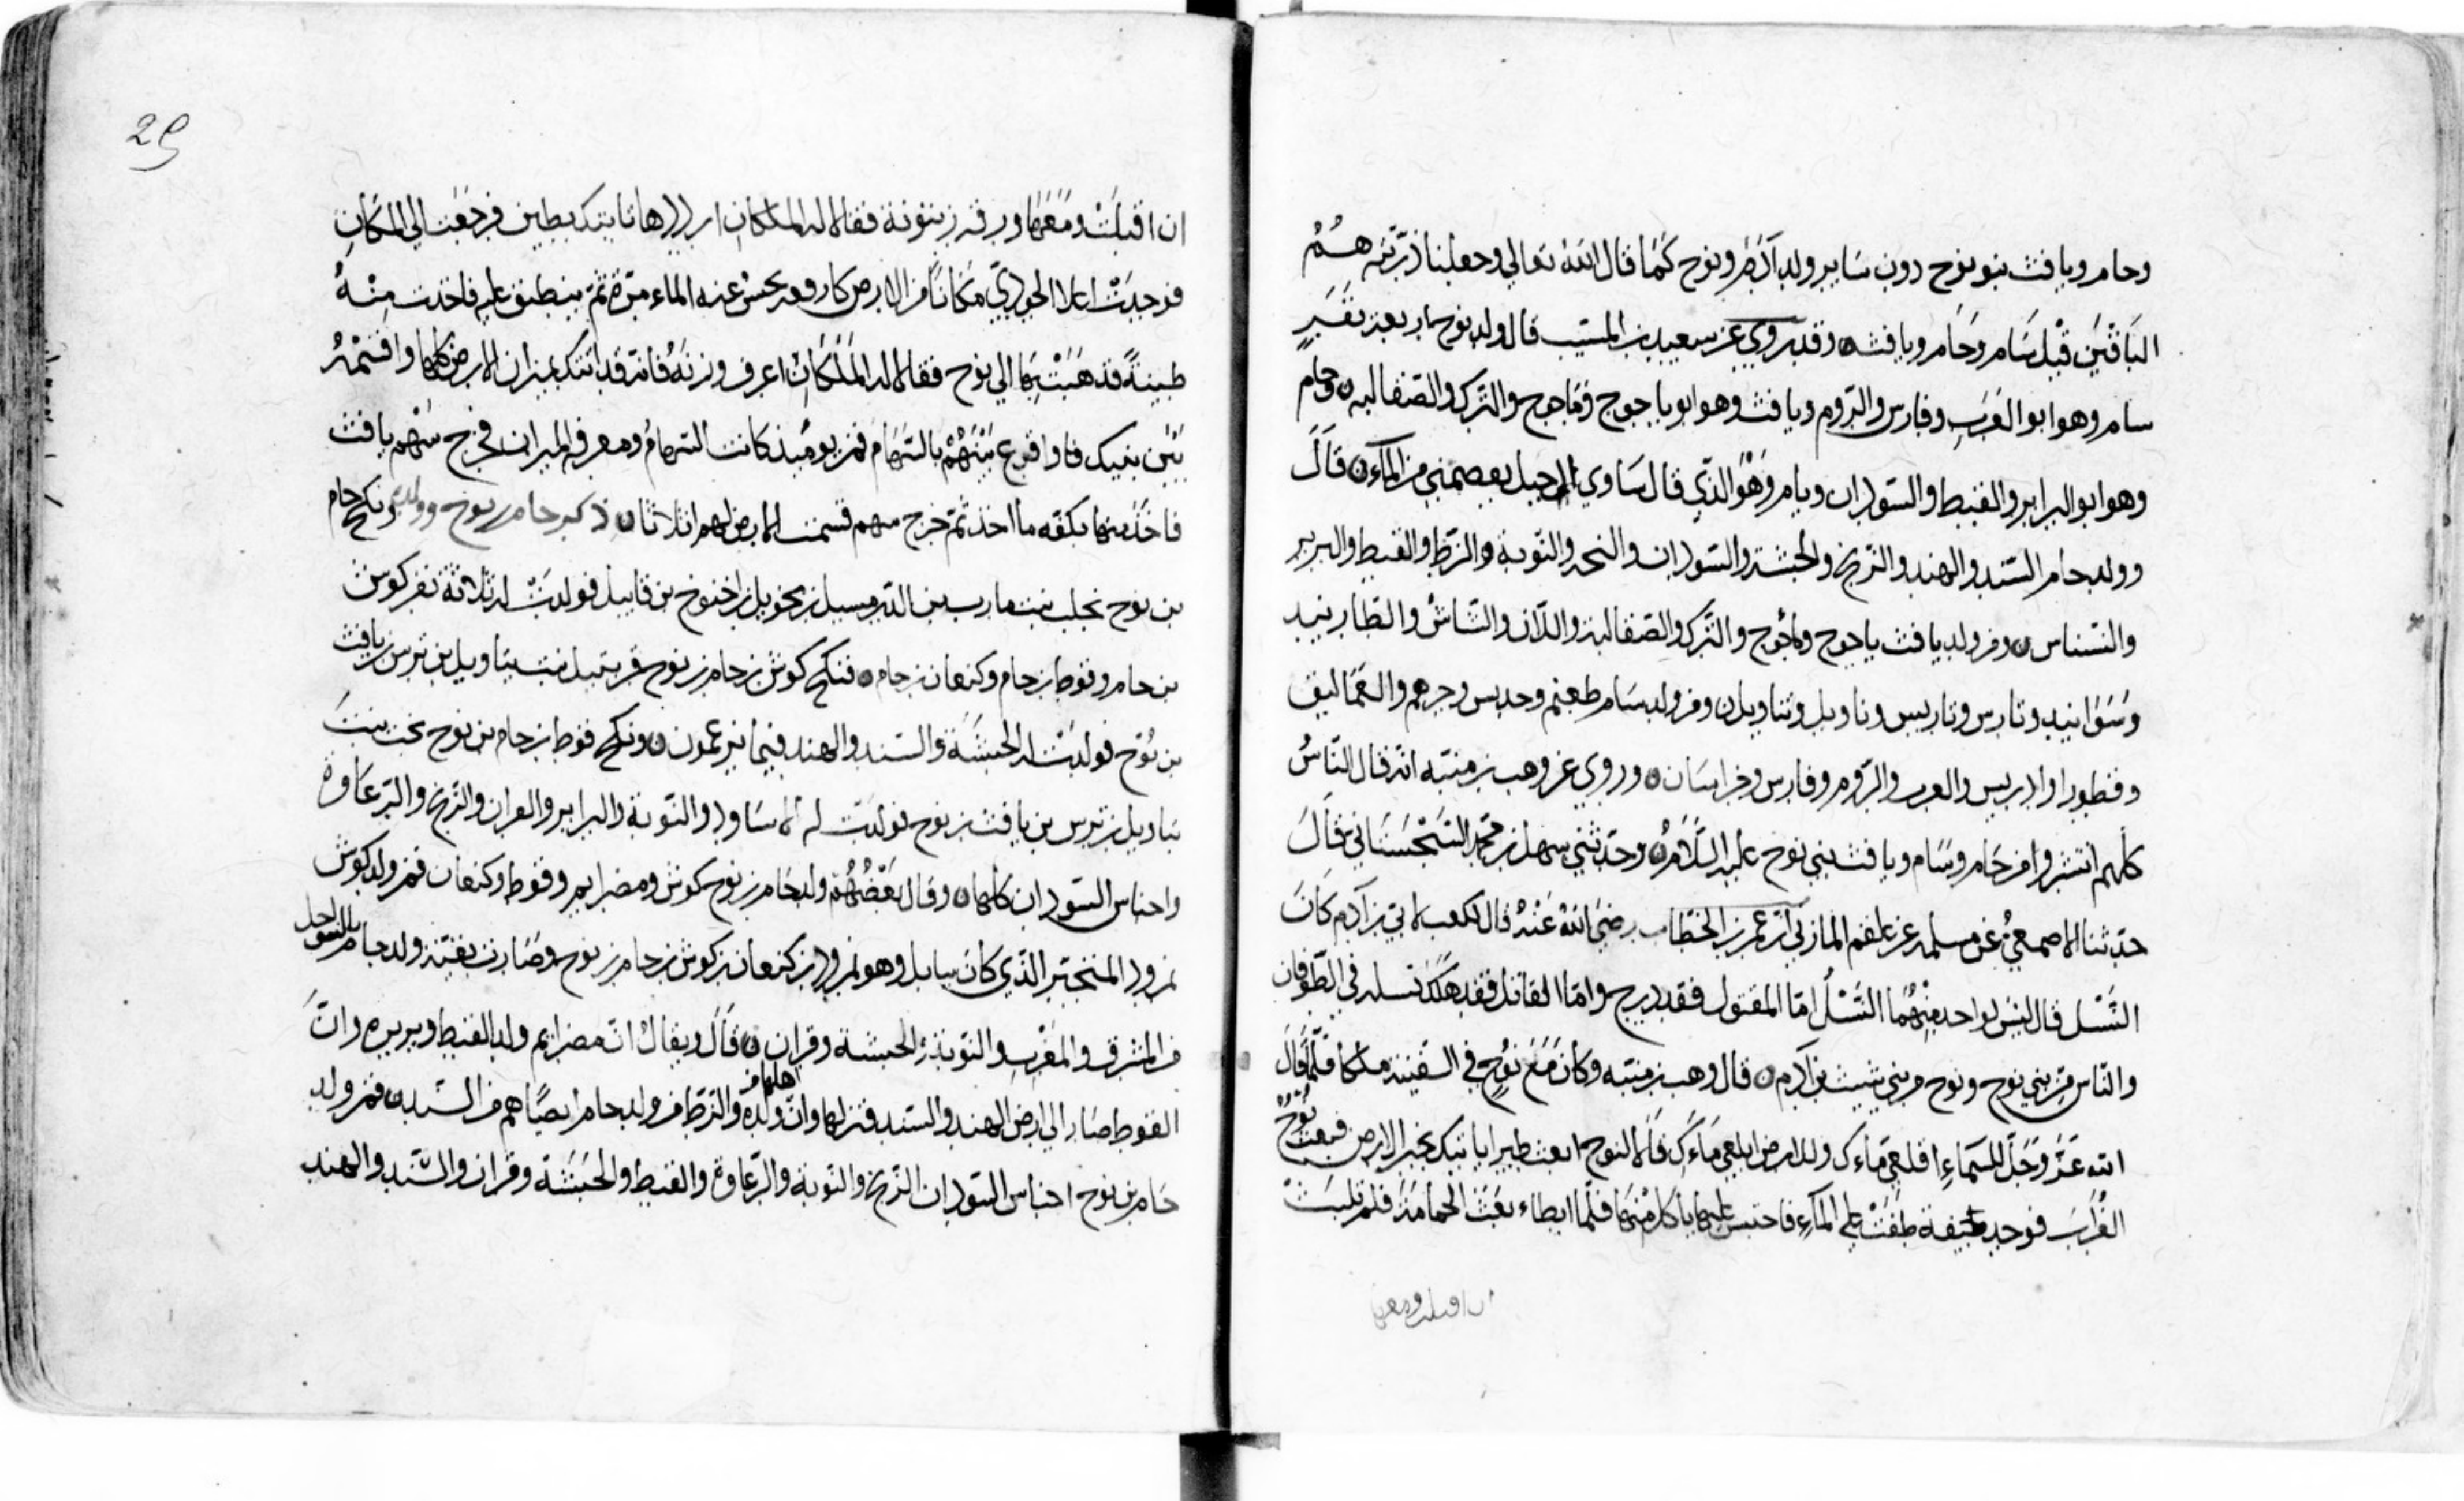 وحام ويافث بنو نوح دون ساير ولد آدم ونوح كما قال الله تعالي وجعلنا ذريته هم
الباقين قيل سام وحام ويافث وقد روي عن سعيد بن المسيب قال ولد نوح اربعة نفر
سام وهو ابو العرب وفارس والروم ويافث وهو ابو ياجوج وماجوج والترك والصقالبه وحام
وهو ابو البرابر والقبط والسودان ويام وهو الذي قال ساوي الي جبل يعصمني من الماء قال
وولد حام السند والهند والزنج والحبشة والسودان والنوبة والزط والقبط والبربر
والنسناس ومن ولد يافث ياجوج وماجوج والترك والصقالبة واللان والشاش
وتارس وتاريس وتاويل ومن ولد سام طسم وجديس وجرهم والعماليق
وقطورا والعرب والروم وفارس وخراسان وروي عن وهب بن منبه انه قال الناس
كلهم انتشروا من حام وسام ويافث بني نوح عليه السلام وحدثني سهل بن محمد السجستاني قال
حدثنا الاصمعي عن مسلمه عن علقم المازني ان عمر بن الخطاب رضي الله عنه قال لكعب لاي بن آدم كان
النسل قال ليس لواحد منهما النسل اما المقتول فقد درج واما القاتل فقد هلك نسله في الطوفان
والناس من بني نوح ونوح من بني شيث بن آدم قال وهب بن منبه وكان مع نوح في السفينة ملكا فلما قال
الله عز وجل للسماء اقلعي ماءك وللارض ابلعي ماءك قالا لنوح ابعث طيرا ياتيك بخبر الارض فبعث نوح
الغراب فوجد جيفة طفت علي الماء فاحتبس عليها ياكل منها فلما ابطاء بعث الحمامة فلم تلبث
ان اقبلت ومعها
ان اقبلت ومعها ورقة زيتونة فقالا له الملكان ارددها تاتيك بطين فرجعت الي المكان
فوجدت اعلا الجودي مكانا من الارض الماء مرة ثم ينطبق عليه فاخذت منه
طينة فذهبت بها الي نوح فقالا له الملكان اعرف وزنه فانه قد اتتك بميزان الارض كلها واقسم
بين بنيك فاواقرع بينهم بالسهام فمن يومئذ كانت السهام ومعرفة الميزان فخرج سهم يافث
فاخذ منها بكفه ما اخذ ثم خرج سهم قسمت الارض لهم اثلاثا ذكر حام بن نوح وولده ونكح حام
بن نوح نحلب بنت مارب بن الدرمسيل بن محويل بن اخنوخ بن قابيل فولدت له ثلاثة نفر كوش
بن حام وقوط بن حام وكنعان بن حام فنكح كوش بن حام بن نوح قرنبيل بنت بتاويل بن ترس بن يافث
بن نوح فولدت له الحبشة والسند والهند فيما يزعمون ونكح قوط بن حام بن نوح بخت بنت
بتاويل بن ترس بن يافث بن نوح فولدت له الاساود والنوبة والبرابر والزنج والزغاوة
واجناس السودان كلها وقال بعضهم ولد حام بن نوح كوش ومصرايم وقوط وكنعان فمن ولد كوش
نمرود المتجبر الذي كان ببابل وهو نمرود بن كنعان بن كوش بن حام بن نوح وصارت بقية ولد حام بالسواحل
من المشرق والمغرب والنوبة والحبشة وقران قال ويقال ان مصرايم ولد القبط وبربره وان
القوط صار الي ارض الهند والسند فنزلها وان اهلها من ولده والزط من ولد حام ايضا هم من السند فمن ولد
حام بن نوح اجناس السودان الزنج والنوبة والزغاوة والقبط والحبشة وقران والسند والهند
29